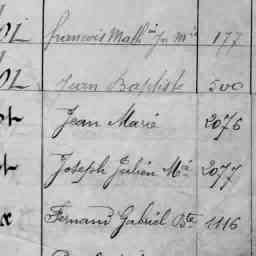 François Math in Ja Mie 177
Jean Baptiste 500
Jean Marie 2076
Joseph Julien Mie 2077
Fernand Gabriel Bte 1116